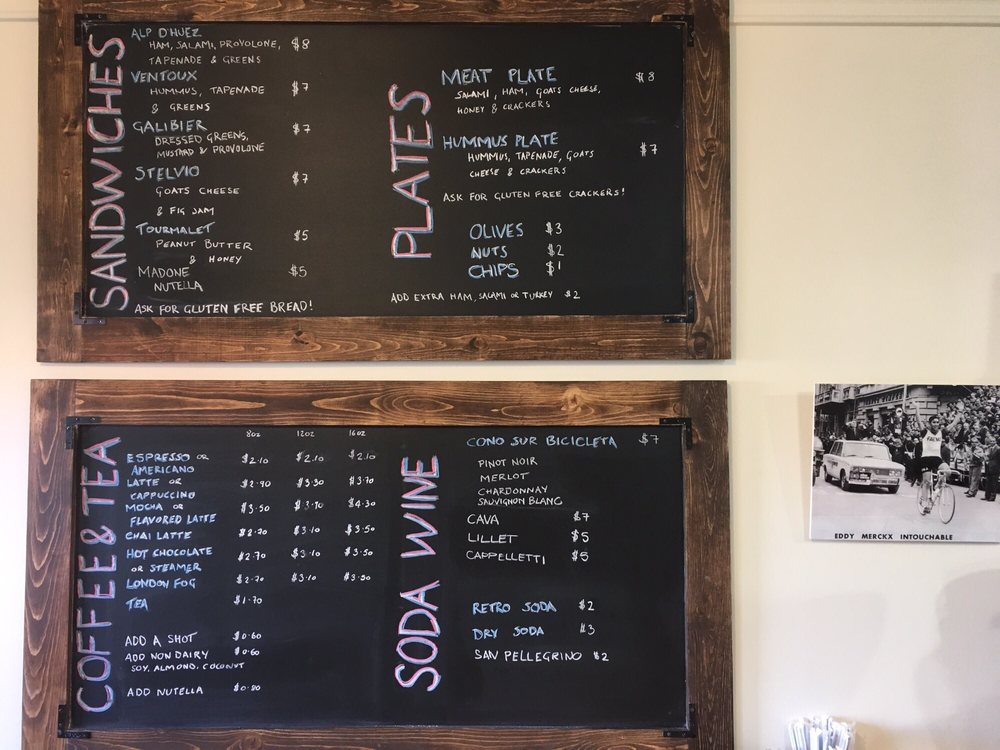 SANDWICHES
ALP D'HUEZ
HAM, SALAMI, PROVOLONE, $8
TAPENADE & GREENS
VENTOUX
HUMMUS, TAPENADE $7
& GREENS
GALIBIER $7
DRESSED GREENS,
MUSTARD & PROVOLONE
STELVIO $7
GOATS CHEESE
& FIG JAM
TOURMALET $5
PEANUT BUTTER
& HONEY
MADONE $5
NUTELLA
ASK FOR GLUTEN FREE BREAD!
PLATES
MEAT PLATE $8
SALAMI, HAM, GOATS CHEESE,
HONEY & CRACKERS
HUMMUS PLATE $7
HUMMUS, TAPENADE, GOATS
CHEESE & CRACKERS
ASK FOR GLUTEN FREE CRACKERS!
OLIVES $3
NUTS $2
CHIPS $1
ADD EXTRA HAM, SALAMI OR TURKEY $2
COFFEE & TEA
8oz 12oz 16oz
ESPRESSO OR $2.10 $2.10 $2.10
AMERICANO
LATTE OR $2.90 $3.30 $3.70
CAPPUCCINO
MOCHA OR $3.50 $3.90 $4.30
FLAVORED LATTE
CHAI LATTE $2.70 $3.10 $3.50
HOT CHOCOLATE $2.70 $3.10 $3.50
OR STEAMER
LONDON FOG $2.70 $3.10 $3.50
TEA $1.70
ADD A SHOT $0.60
ADD NON DAIRY $0.60
SOY, ALMOND, COCONUT
ADD NUTELLA $0.80
SODA WINE
CONO SUR BICICLETA $7
PINOT NOIR
MERLOT
CHARDONNAY
SAUVIGNON BLANC
CAVA $7
LILLET $5
CAPPELLETTI $5
RETRO SODA $2
DRY SODA $3
SAN PELLEGRINO $2
EDDY MERCKX INTOUCHABLE